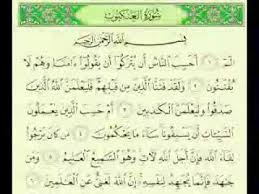 سُورَةُ الْعَنْكَبُوتِ
بِسْمِ اللَّهِ الرَّحْمَٰنِ الرَّحِيمِ
الٓمٓ ١ أَحَسِبَ النَّاسُ أَن يُتْرَكُوٓا أَن يَقُولُوٓا ءَامَنَّا وَهُمْ لَا
يُفْتَنُونَ ٢ وَلَقَدْ فَتَنَّا الَّذِينَ مِن قَبْلِهِمْ فَلَيَعْلَمَنَّ اللَّهُ الَّذِينَ
صَدَقُوا وَلَيَعْلَمَنَّ الْكَٰذِبِينَ ٣ أَمْ حَسِبَ الَّذِينَ يَعْمَلُونَ
السَّيِّـَٔاتِ أَن يَسْبِقُونَا سَآءَ مَا يَحْكُمُونَ ٤ مَن كَانَ يَرْجُوا
لِقَآءَ اللَّهِ فَإِنَّ أَجَلَ اللَّهِ لَـَٔاتٍ وَهُوَ السَّمِيعُ الْعَلِيمُ ٥ وَمَن
جَٰهَدَ فَإِنَّمَا يُجَٰهِدُ لِنَفْسِهِۦٓ إِنَّ اللَّهَ لَغَنِيٌّ عَنِ الْعَٰلَمِينَ ٦